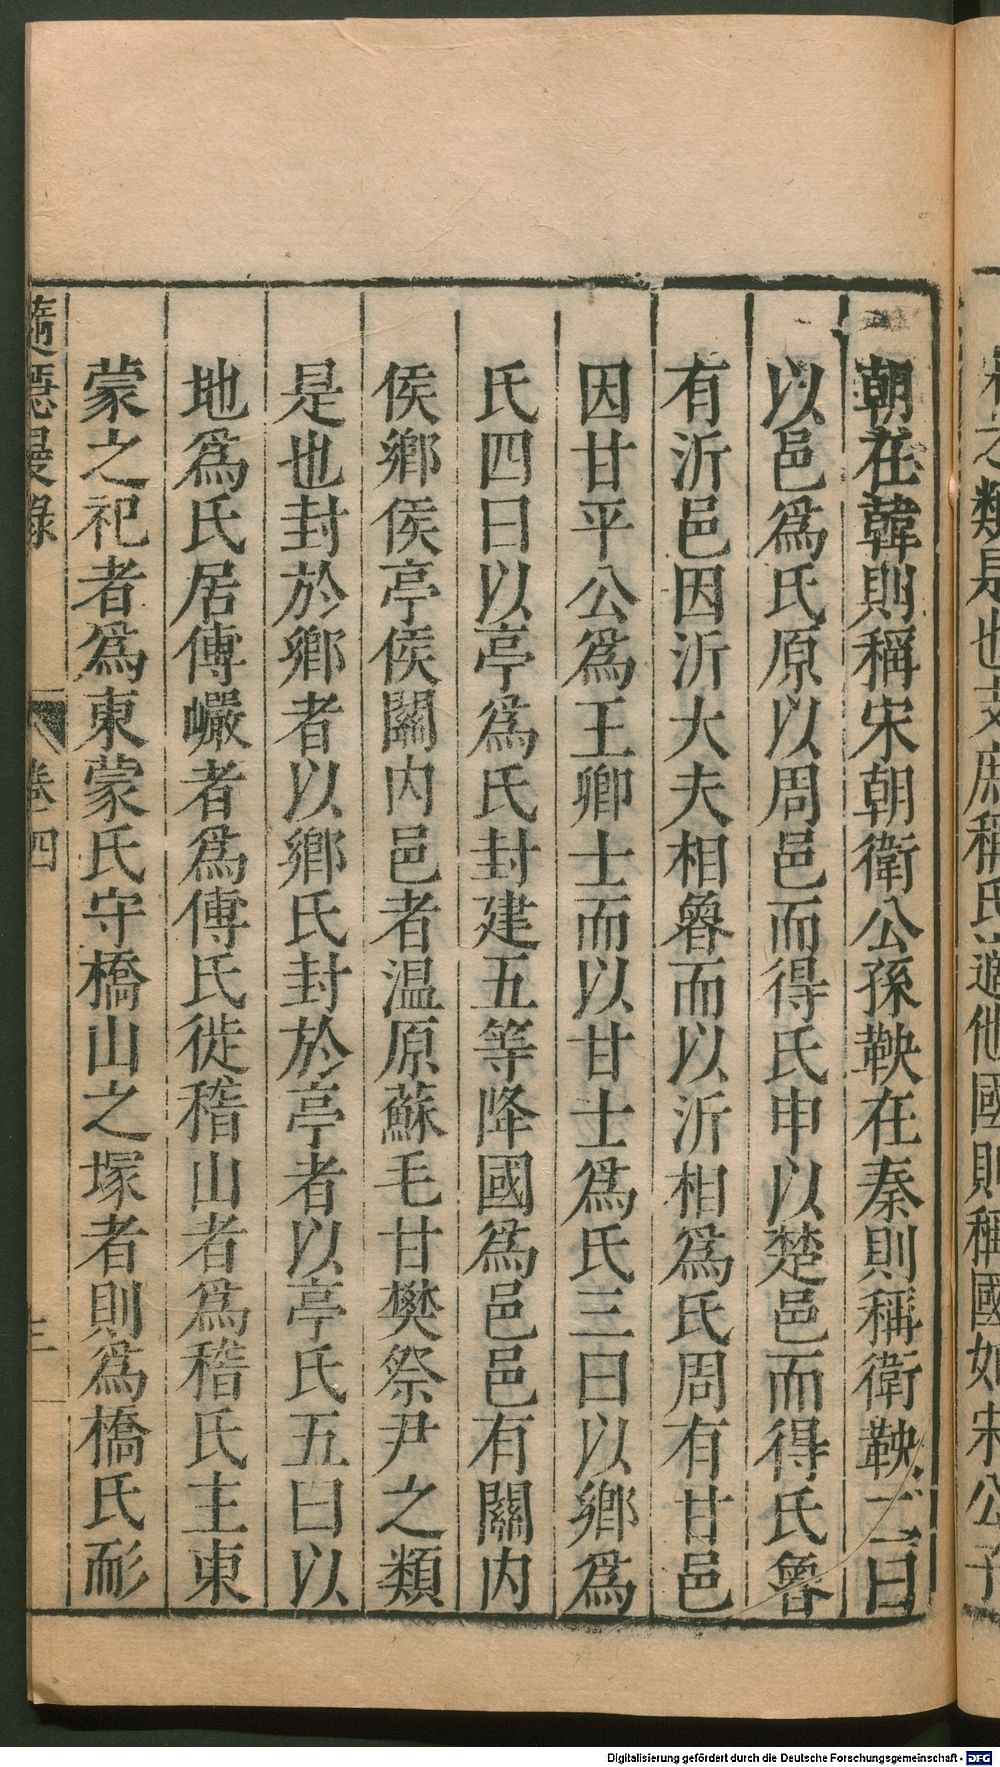 宋之類是也支庶稱氏適他國則稱國如宋公子
朝在韓則稱宋朝衛公孫鞅在秦則稱衛鞅二曰
以邑爲氏原以周邑而得氏申以楚邑而得氏魯
有沂邑因沂大夫相魯而以沂相爲氏周有甘邑
因甘平公爲王卿士而以甘士爲氏三曰以鄉爲
氏四曰以亭爲氏封建五等降國爲邑邑有關内
侯鄉侯亭侯關内邑者温原蘇毛甘樊祭尹之類
是也封於鄉者以鄉氏封於亭者以亭氏五曰以
地爲氏居傅巖者爲傅氏徙稽山者爲稽氏主東
蒙之祀者爲東蒙氏守橋山之塚者則爲橋氏耏
卷四
三
Digitalisierung gefördert durch die Deutsche Forschungsgemeinschaft - DFG